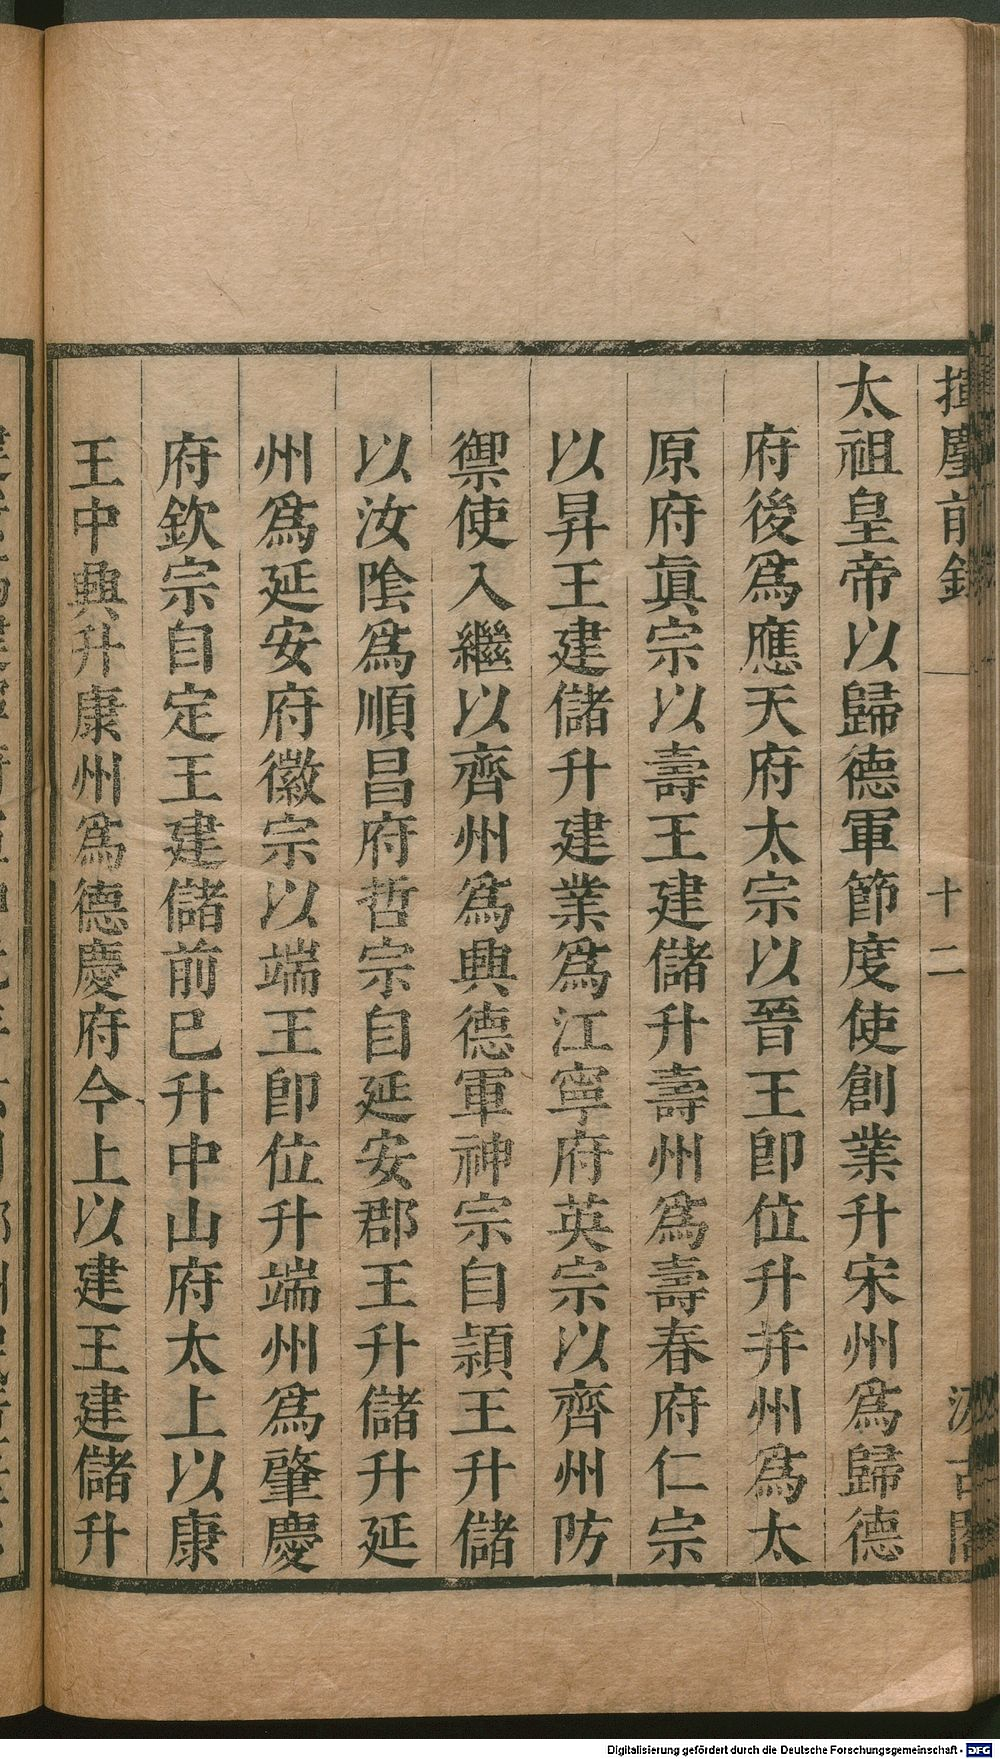 揮麈前錄 一 十二 汲古閣
太祖皇帝以歸德軍節度使創業升宋州爲歸德
府後爲應天府太宗以晉王卽位升幷州爲太
原府眞宗以壽王建儲升壽州爲壽春府仁宗
以昇王建儲升建業爲江寧府英宗以齊州防
禦使入繼以齊州爲興德軍神宗自潁王升儲
以汝陰爲順昌府哲宗自延安郡王升儲升延
州爲延安府徽宗以端王卽位升端州爲肇慶
府欽宗自定王建儲前已升中山府太上以康
王中興升康州爲德慶府今上以建王建儲升
Digitalisierung gefördert durch die Deutsche Forschungsgemeinschaft - DFG